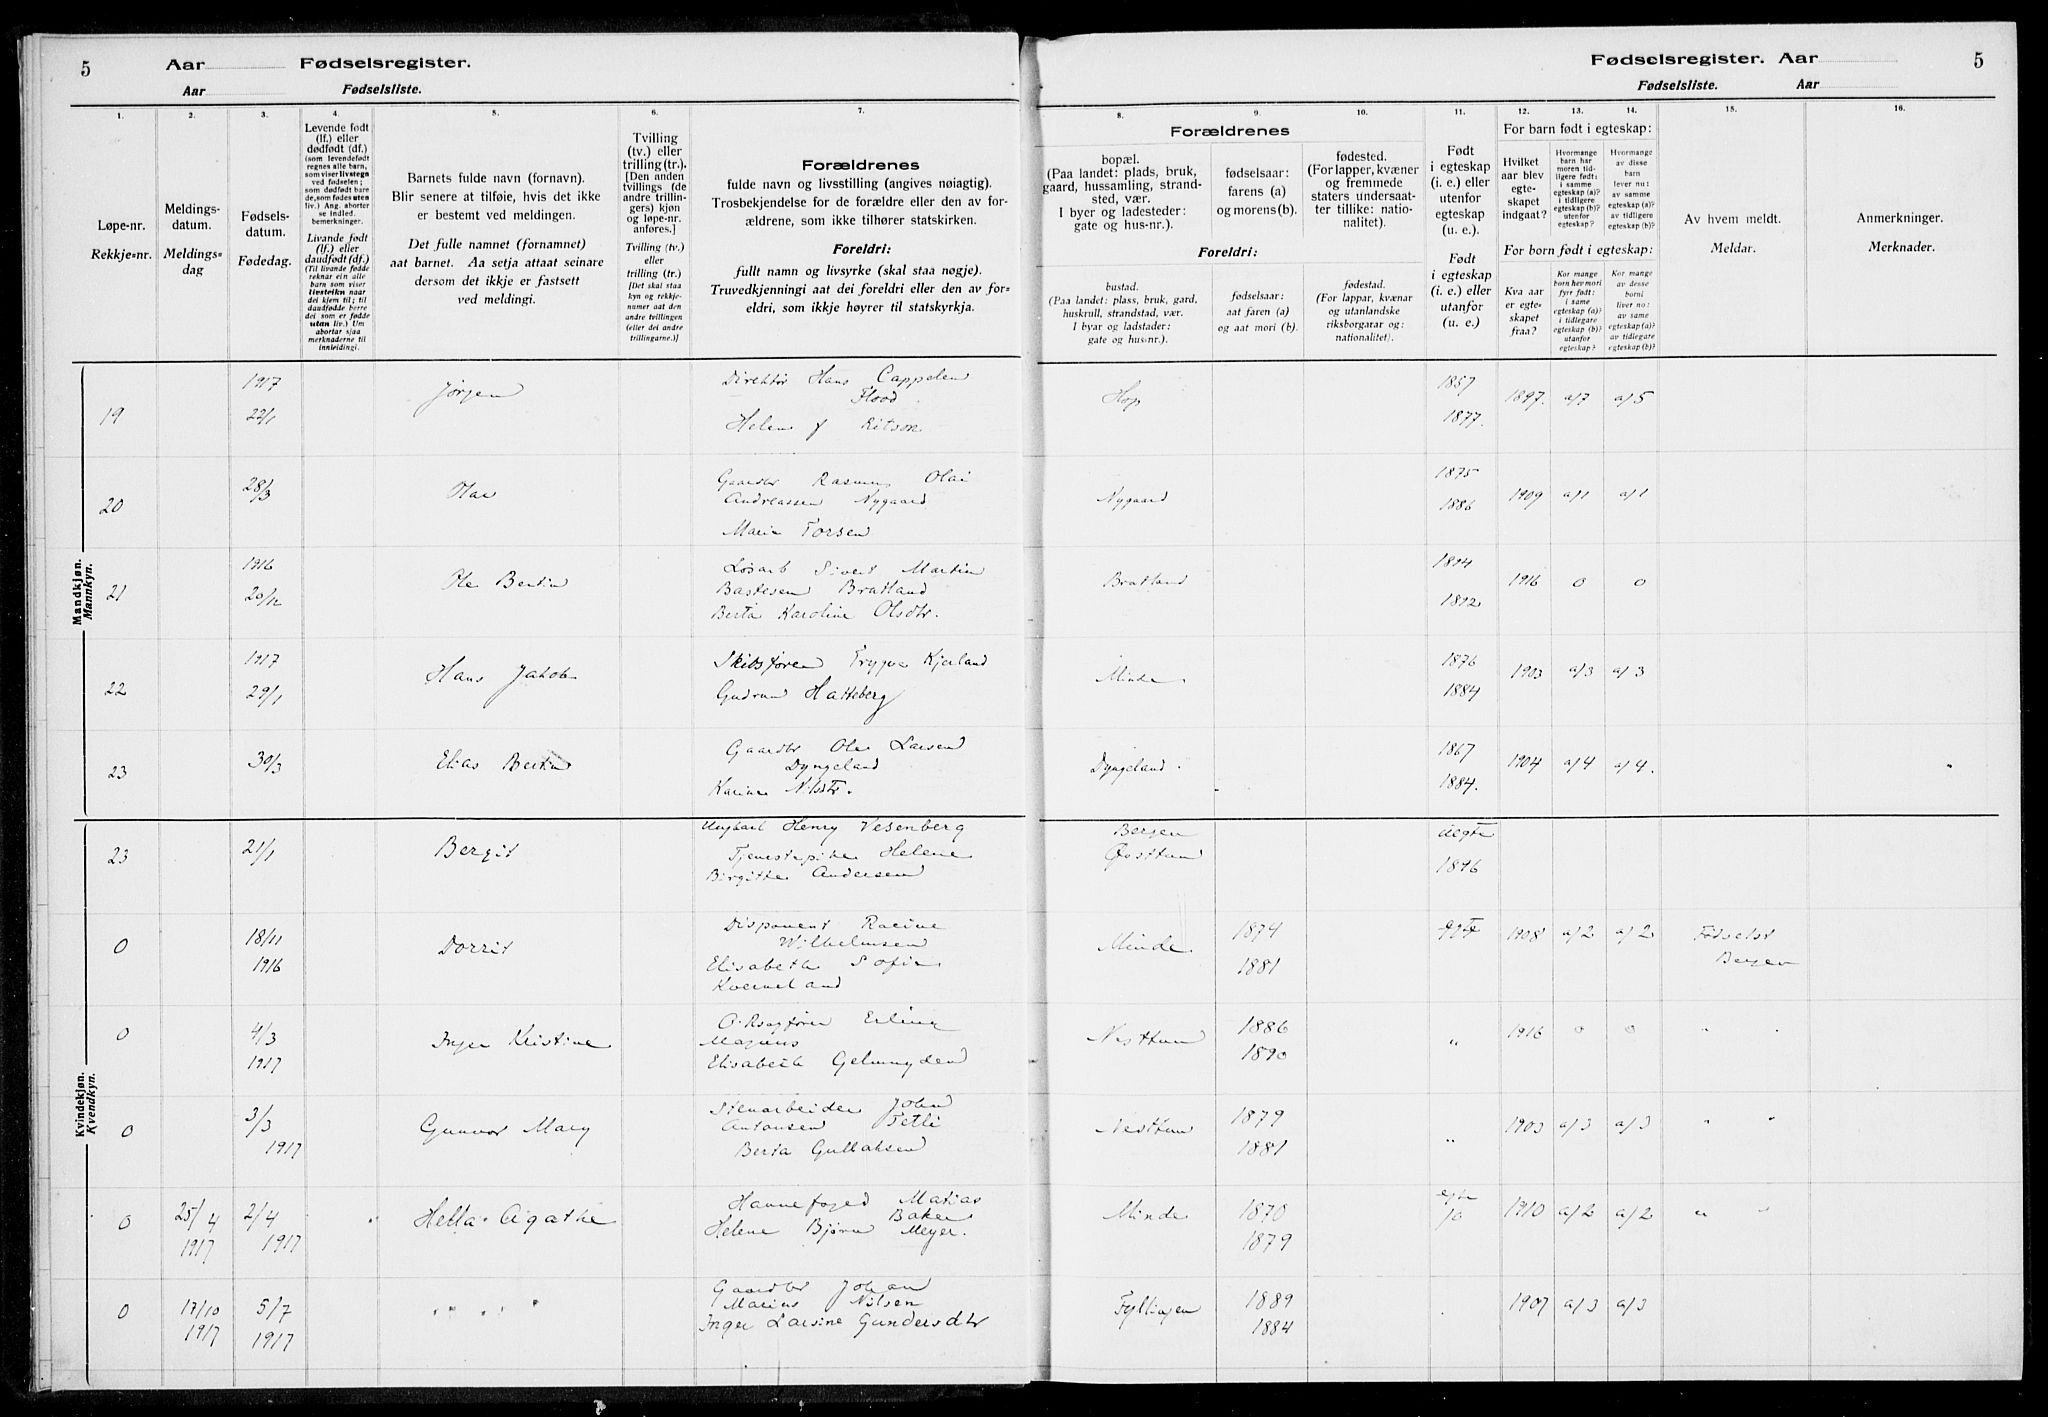 5 Aar Fødselsregister.
Aar Fødselsliste.
Fødselsregister. Aar 5
Fødselsliste. Aar
1. 2. 3. 4. 5. 6. 7.
Løpe-nr.
Rekkje=nr.
Meldings-
datum.
Meldings=
dag
Fødsels-
datum.
Fødedag.
Levende født
(lf.) eller
dødfødt (df.)
(som levendefødt
regnes alle barn,
som viser livstegn
ved fødselen;
som dødfødt bare
de, som fødes uten
liv.) Ang. aborter
se indled.
bemerkninger.
Livande født
(lf.) eller
daudfødt (df.)
(Til livande fødde
reknar ein alle
born som viser
livsteikn naar
dei kjem til; til
daudfødde berre
dei som er fødde
utan liv.) Um
abortar sjaa
merknaderne til
innleidingi.
Barnets fulde navn (fornavn).
Blir senere at tilføie, hvis det ikke
er bestemt ved meldingen.
Det fulle namnet (fornamnet)
aat barnet. Aa setja attaat seinare
dersom det ikkje er fastsett
ved meldingi.
Tvilling
(tv.) eller
trilling (tr.).
[Den anden
tvillings (de
andre trillin-
gers) kjøn
og løpe-nr.
anføres.]
Tvilling (tv.)
eller
trilling (tr.)
[Det skal staa
kyn og rekkje-
numer aat den
andre tvillingen
(eller dei andre
trillingarne.)]
Forældrenes
fulde navn og livsstilling (angives nøiagtig).
Trosbekjendelse for de forældre eller den av for-
ældrene, som ikke tilhører statskirken.
Foreldri:
fullt namn og livsyrke (skal staa nøgje).
Truvedkjenningi aat dei foreldri eller den av for=
eldri, som ikkje høyrer til statskyrkja.
8. 9. 10. 11. 12. 13. 14. 15. 16.
Forældrenes
bopæl.
(Paa landet: plads, bruk,
gaard, hussamling, strand-
sted, vær.
I byer og ladesteder:
gate og hus-nr.).
fødselsaar:
farens (a)
og morens (b).
fødested.
(For lapper, kvæner
og fremmede
staters undersaat-
ter tillike: natio-
nalitet).
Foreldri:
bustad.
(Paa landet: plass, bruk, gard,
huskrull, strandstad, vær.
I byar og ladstader:
gate og hus=nr.).
fødselsaar:
aat faren (a)
og aat mori (b).
fødestad.
(For lappar, kvænar
og utanlandske
riksborgarar og:
nationalitet).
Født
i egteskap
(i. e.) eller
utenfor
egteskap
(u. e.).
Født
i egteskap
(i. e.) eller
utanfor
egteskap
(u. e.)
For barn født i egteskap:
Hvilket
aar blev
egte-
skapet
indgaat?
Hvormange
barn har
moren tid-
ligere født:
i samme
egteskap (a)?
i tidligere
egteskap (b)?
utenfor
egteskap?
Hvormange
av disse
barn
lever nu:
av samme
egteskap (a)?
av tidligere
egteskap (b)?
For born født i egteskap:
Kva aar
er egte=
skapet
fraa?
Kor mange
born hev mori
fyrr født:
i same
egteskap (a)?
i tidlegare
egteskap (b)?
utanfor
egteskap?
Kor mange
av desse
borni
liver no:
av same
egteskap (a)?
av tidlegare
egteskap (b)?
Av hvem meldt.
Meldar.
Anmerkninger.
Merknader.
Mandkjøn.
Mannkyn.
19 1917 22/1 Jørgen Direktør Hans Cappelen
Flood.
Helen f Ritson Hop 1857 1877. 1897. a/7 a/5
20 28/3 Olav Gaardbr Rasmus Olai
Andreassen Nygaard
Marie Torsen Nygaard 1875 1886 1909 a/1 a/1
21 1916 20/12 Ole Bertin Løsarb Sivert Martin
Bastesen Bratland
Berta Karoline Olsdtr. Bratland 1894 1892 1916 0 0
22 1917 29/1 Hans Jakob Skibsfører Trygve Kjerland
Gudrun Hatteberg Minde 1876 1884 1903 a/3 a/3
23 30/3 Elias Bertin Gaardbr Ole Larsen
Dyngeland
Karine Nilsdtr. Dyngeland. 1867 1884. 1904 a/4 a/4.
Kvindekjøn.
Kvendkyn.
23 21/1 Bergit Ungkarl Henry Vesenberg
Tjenestepike Helene
Birgitte Andersen Bergen
Øvsttun uegte 1896
0 18/11 1916 Dorrit Disponent Racine
Wilhelmsen
Elisabeth Sofie
Kverneland Minde 1874 1881 egte 1908 a/2 a/2 Fødselst
Bergen
0 4/3 1917 Inger Kristine O.Rsagfører Erling
Magnus
Elisabeth Gelmuyden Nesttun 1886 1890 " 1916 0 0 " "
0 3/3 1917 Gunvor Mary Stenarbeider John
Antonsen Tetli
Berta Gullaksen Nesttun 1879 1881 " 1903 a/3 a/3 " "
0 25/4 1917 2/4 1917 Hella Agathe Havnefoged Matias
Baker
Helene Bjørn Meyer. Minde 1870 1879 egte 1910 a/2 a/2 " "
0 17/10 1917 5/7 1917 " " " " Gaardbr Johan
Marius Nilsen
Inger Larsine Gundersdtr Fyllingen 1889 1884 1907 a/3 a/3